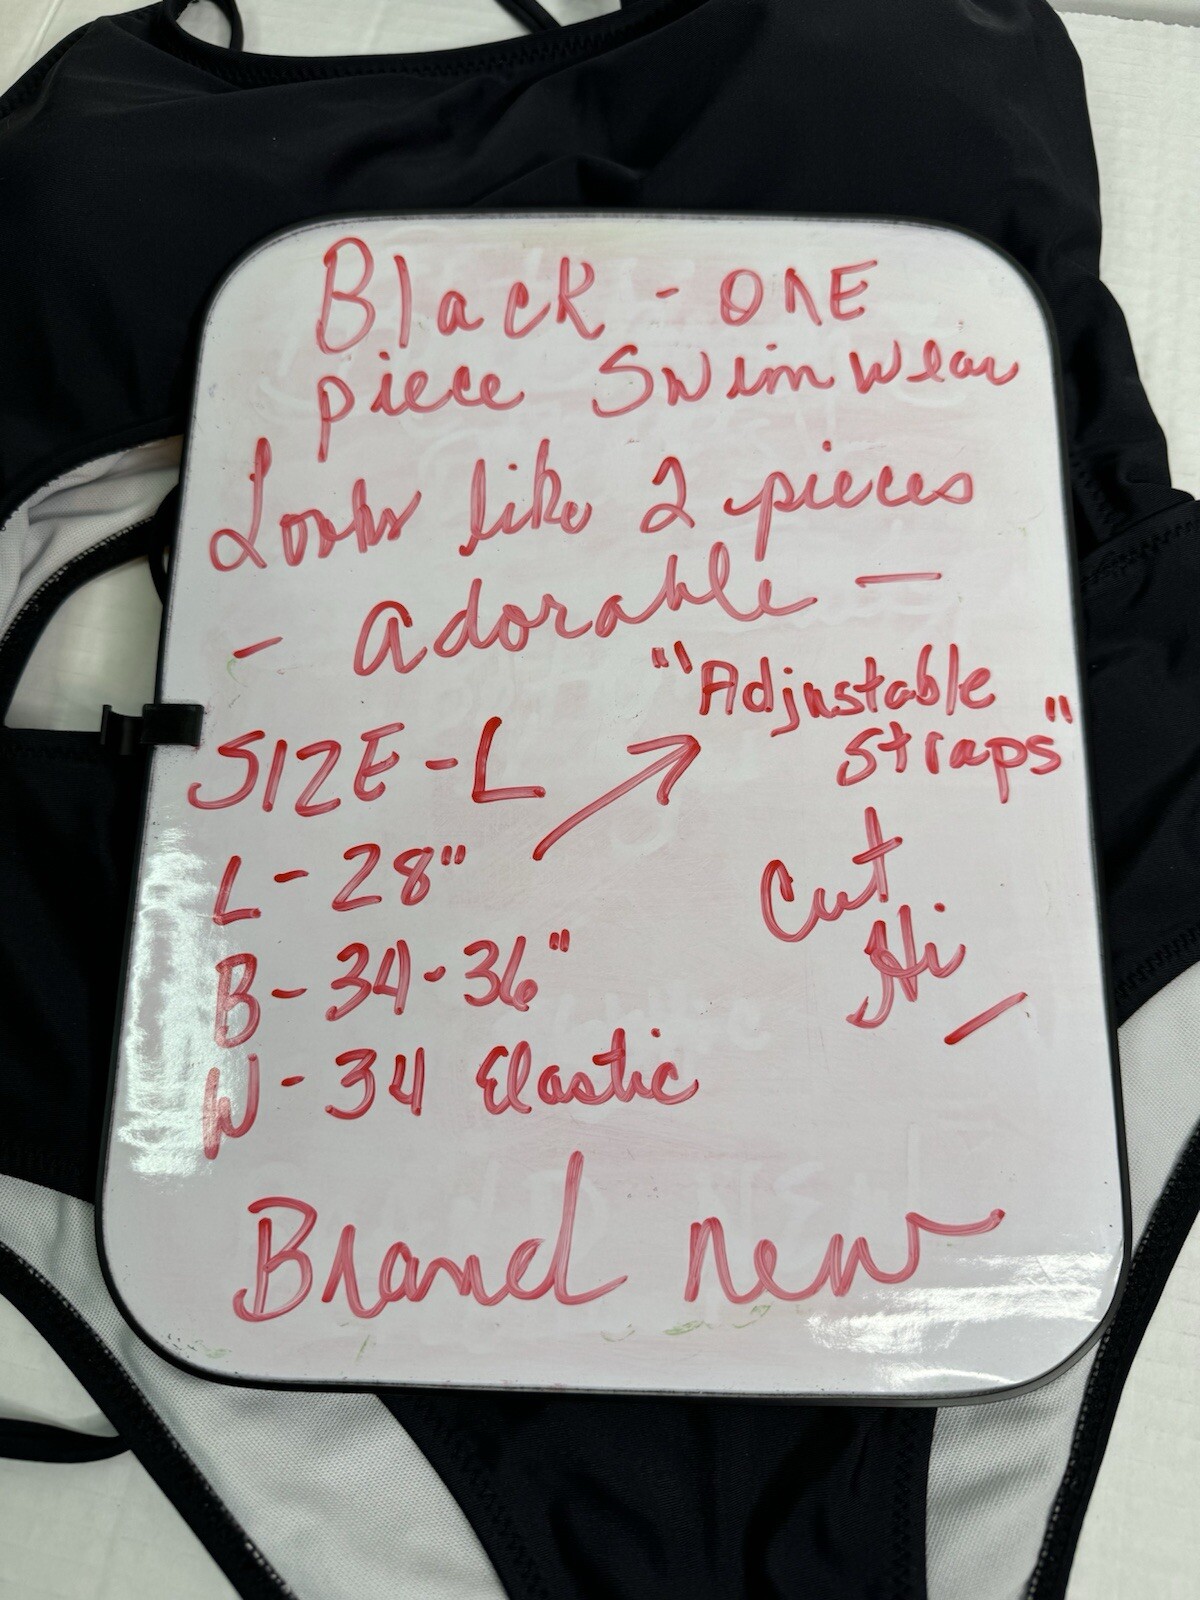 Black - ONE
piece Swimwear
Looks like 2 pieces
- adorable -
"Adjustable
Straps"
SIZE - L
L - 28"
B - 34-36"
W - 34 Elastic
Cut
Hi
Brand new